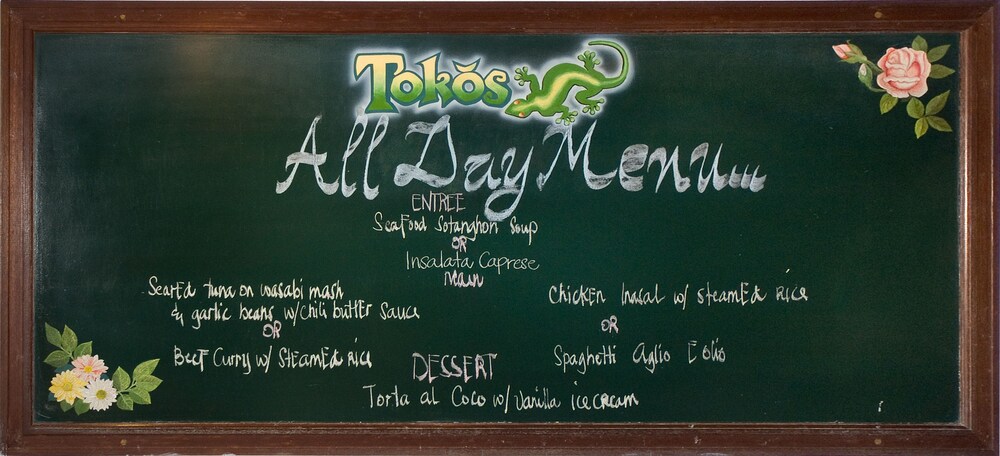 Tokŏs
All Day Menu...
ENTREE
Seafood Sotanghon Soup
OR
Insalata Caprese
Main
Seared tuna on wasabi mash
& garlic beans w/chili butter sauce
OR
Beef Curry w/ Steamed rice
Chicken Inasal w/ steamed rice
OR
Spaghetti Aglio E olio
DESSERT
Torta al Coco w/ Vanilla icecream